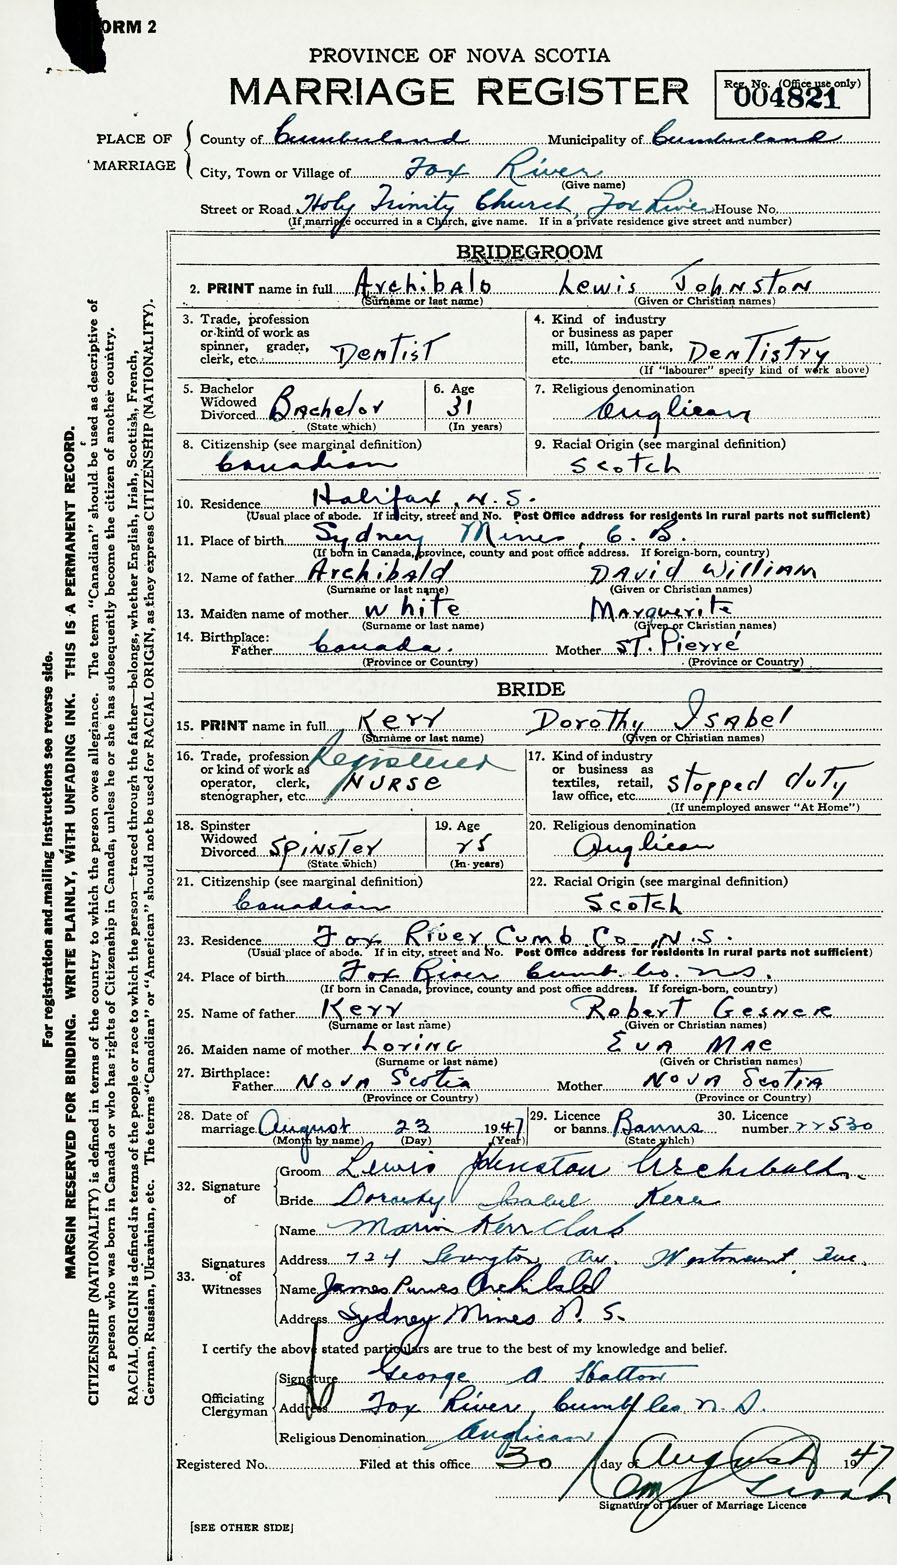 FORM 2
PROVINCE OF NOVA SCOTIA
MARRIAGE REGISTER
Reg. No. (Office use only)
004821
PLACE OF MARRIAGE
County of Cumberland Municipality of Cumberland
City, Town or Village of Fox River
(Give name)
Street or Road Holy Trinity Church, Fox River House No.
(If marriage occurred in a Church, give name. If in a private residence give street and number)
BRIDEGROOM
2. PRINT name in full Archibald Lewis Johnston
(Surname or last name) (Given or Christian names)
3. Trade, profession or kind of work as spinner, grader, clerk, etc. Dentist
4. Kind of industry or business as paper mill, lumber, bank, etc. Dentistry
(If "labourer" specify kind of work above)
5. Bachelor Widowed Divorced Bachelor
(State which)
6. Age 31
(In years)
7. Religious denomination
Anglican
8. Citizenship (see marginal definition)
Canadian
9. Racial Origin (see marginal definition)
Scotch
10. Residence Halifax, N.S.
(Usual place of abode. If in city, street and No. Post Office address for residents in rural parts not sufficient)
11. Place of birth Sydney Mines, C. B.
(If born in Canada, province, county and post office address. If foreign-born, country)
12. Name of father Archibald David William
(Surname or last name) (Given or Christian names)
13. Maiden name of mother White Marguerite
(Surname or last name) (Given or Christian names)
14. Birthplace:
Father Canada. Mother St. Pierre
(Province or Country) (Province or Country)
BRIDE
15. PRINT name in full Kerr Dorothy Isabel
(Surname or last name) (Given or Christian names)
16. Trade, profession or kind of work as operator, clerk, stenographer, etc. Registered Nurse
17. Kind of industry or business as textiles, retail, law office, etc. Stopped duty
(If unemployed answer "At Home")
18. Spinster Widowed Divorced Spinster
(State which)
19. Age 25
(In years)
20. Religious denomination
Anglican
21. Citizenship (see marginal definition)
Canadian
22. Racial Origin (see marginal definition)
Scotch
23. Residence Fox River Cumb Co., N.S.
(Usual place of abode. If in city, street and No. Post Office address for residents in rural parts not sufficient)
24. Place of birth Fox River Cumb. Co. N.S.
(If born in Canada, province, county and post office address. If foreign-born, country)
25. Name of father Kerr Robert Gesner
(Surname or last name) (Given or Christian names)
26. Maiden name of mother Loring Eva Mae
(Surname or last name) (Given or Christian names)
27. Birthplace:
Father Nova Scotia Mother Nova Scotia
(Province or Country) (Province or Country)
28. Date of marriage August 23 1947
(Month by name) (Day) (Year)
29. Licence or banns Banns
(State which)
30. Licence number 22530
32. Signature of
Groom Lewis Johnston Archibald
Bride Dorothy Isabel Kerr
33. Signatures of Witnesses
Name Marion Kerr Clark
Address 724 Lexington Av. Westmount, Que.
Name James Purves Archibald
Address Sydney Mines N. S.
I certify the above stated particulars are true to the best of my knowledge and belief.
Officiating Clergyman
Signature George A Hatton
Address Fox River, Cumb Co. N. S.
Religious Denomination Anglican
Registered No. Filed at this office 30 day of August 1947
Signature of Issuer of Marriage Licence
[SEE OTHER SIDE]
For registration and mailing instructions see reverse side.
MARGIN RESERVED FOR BINDING. WRITE PLAINLY, WITH UNFADING INK. THIS IS A PERMANENT RECORD.
CITIZENSHIP (NATIONALITY) is defined in terms of the country to which the person owes allegiance. The term "Canadian" should be used as descriptive of
a person who was born in Canada or who has rights of Citizenship in Canada, unless he or she has subsequently become the citizen of another country.
RACIAL ORIGIN is defined in terms of the people or race to which the person—traced through the father—belongs, whether English, Irish, Scottish, French,
German, Russian, Ukrainian, etc. The terms "Canadian" or "American" should not be used for RACIAL ORIGIN, as they express CITIZENSHIP (NATIONALITY).